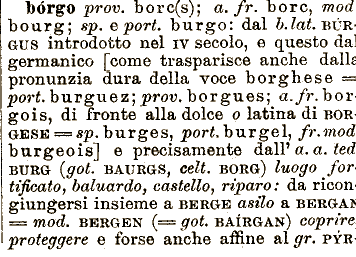 bórgo prov. borc(s); a. fr. borc, mod
bourg; sp. e port. burgo: dal b. lat. BÚR-
GUS introdotto nel IV secolo, e questo dal
germanico [come trasparisce anche dalla
pronunzia dura della voce borghese =
port. burguez; prov. borgues; a. fr. bor-
gois, di fronte alla dolce o latina di BOR-
GESE = sp. burges, port. burgel, fr. mod
burgeois] e precisamente dall' a. a. ted
BURG (got. BAURGS, celt. BORG) luogo for-
tificato, baluardo, castello, riparo: da ricon-
giungersi insieme a BERGE asilo a BERGAN
= mod. BERGEN (= got. BAÍRGAN) coprire,
proteggere e forse anche affine al gr. PÝR-